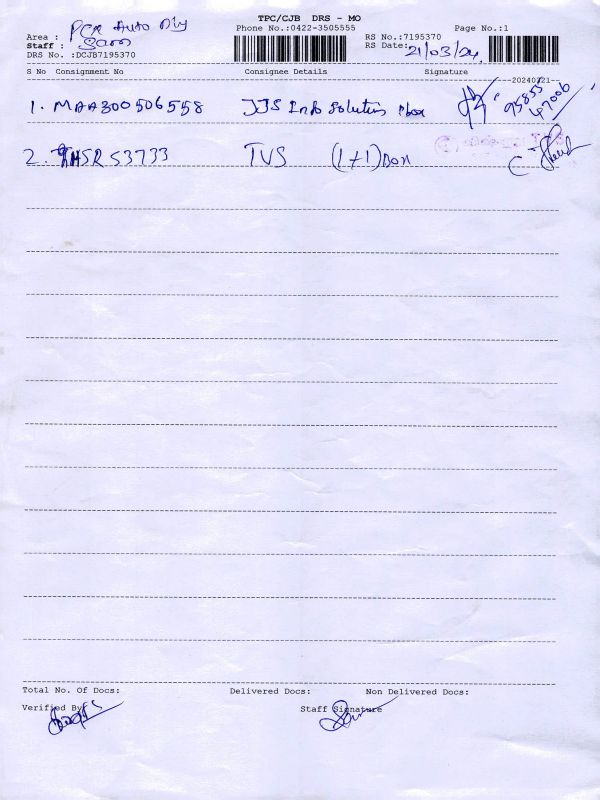 TPC/CJB DRS - MO
Area : PCR Auto Dly Phone No.:0422-3505555 RS No.:7195370 Page No.:1
Staff : RS Date: 21/03/24
DRS No. :DCJB7195370
S No Consignment No Consignee Details Signature
20240321
1. MAA300506558 JJS Info Solutions 1 box 95855 47006
2. 53733 TVS (1+1) Box
Total No. Of Docs: Delivered Docs: Non Delivered Docs:
Verified By Staff Signature